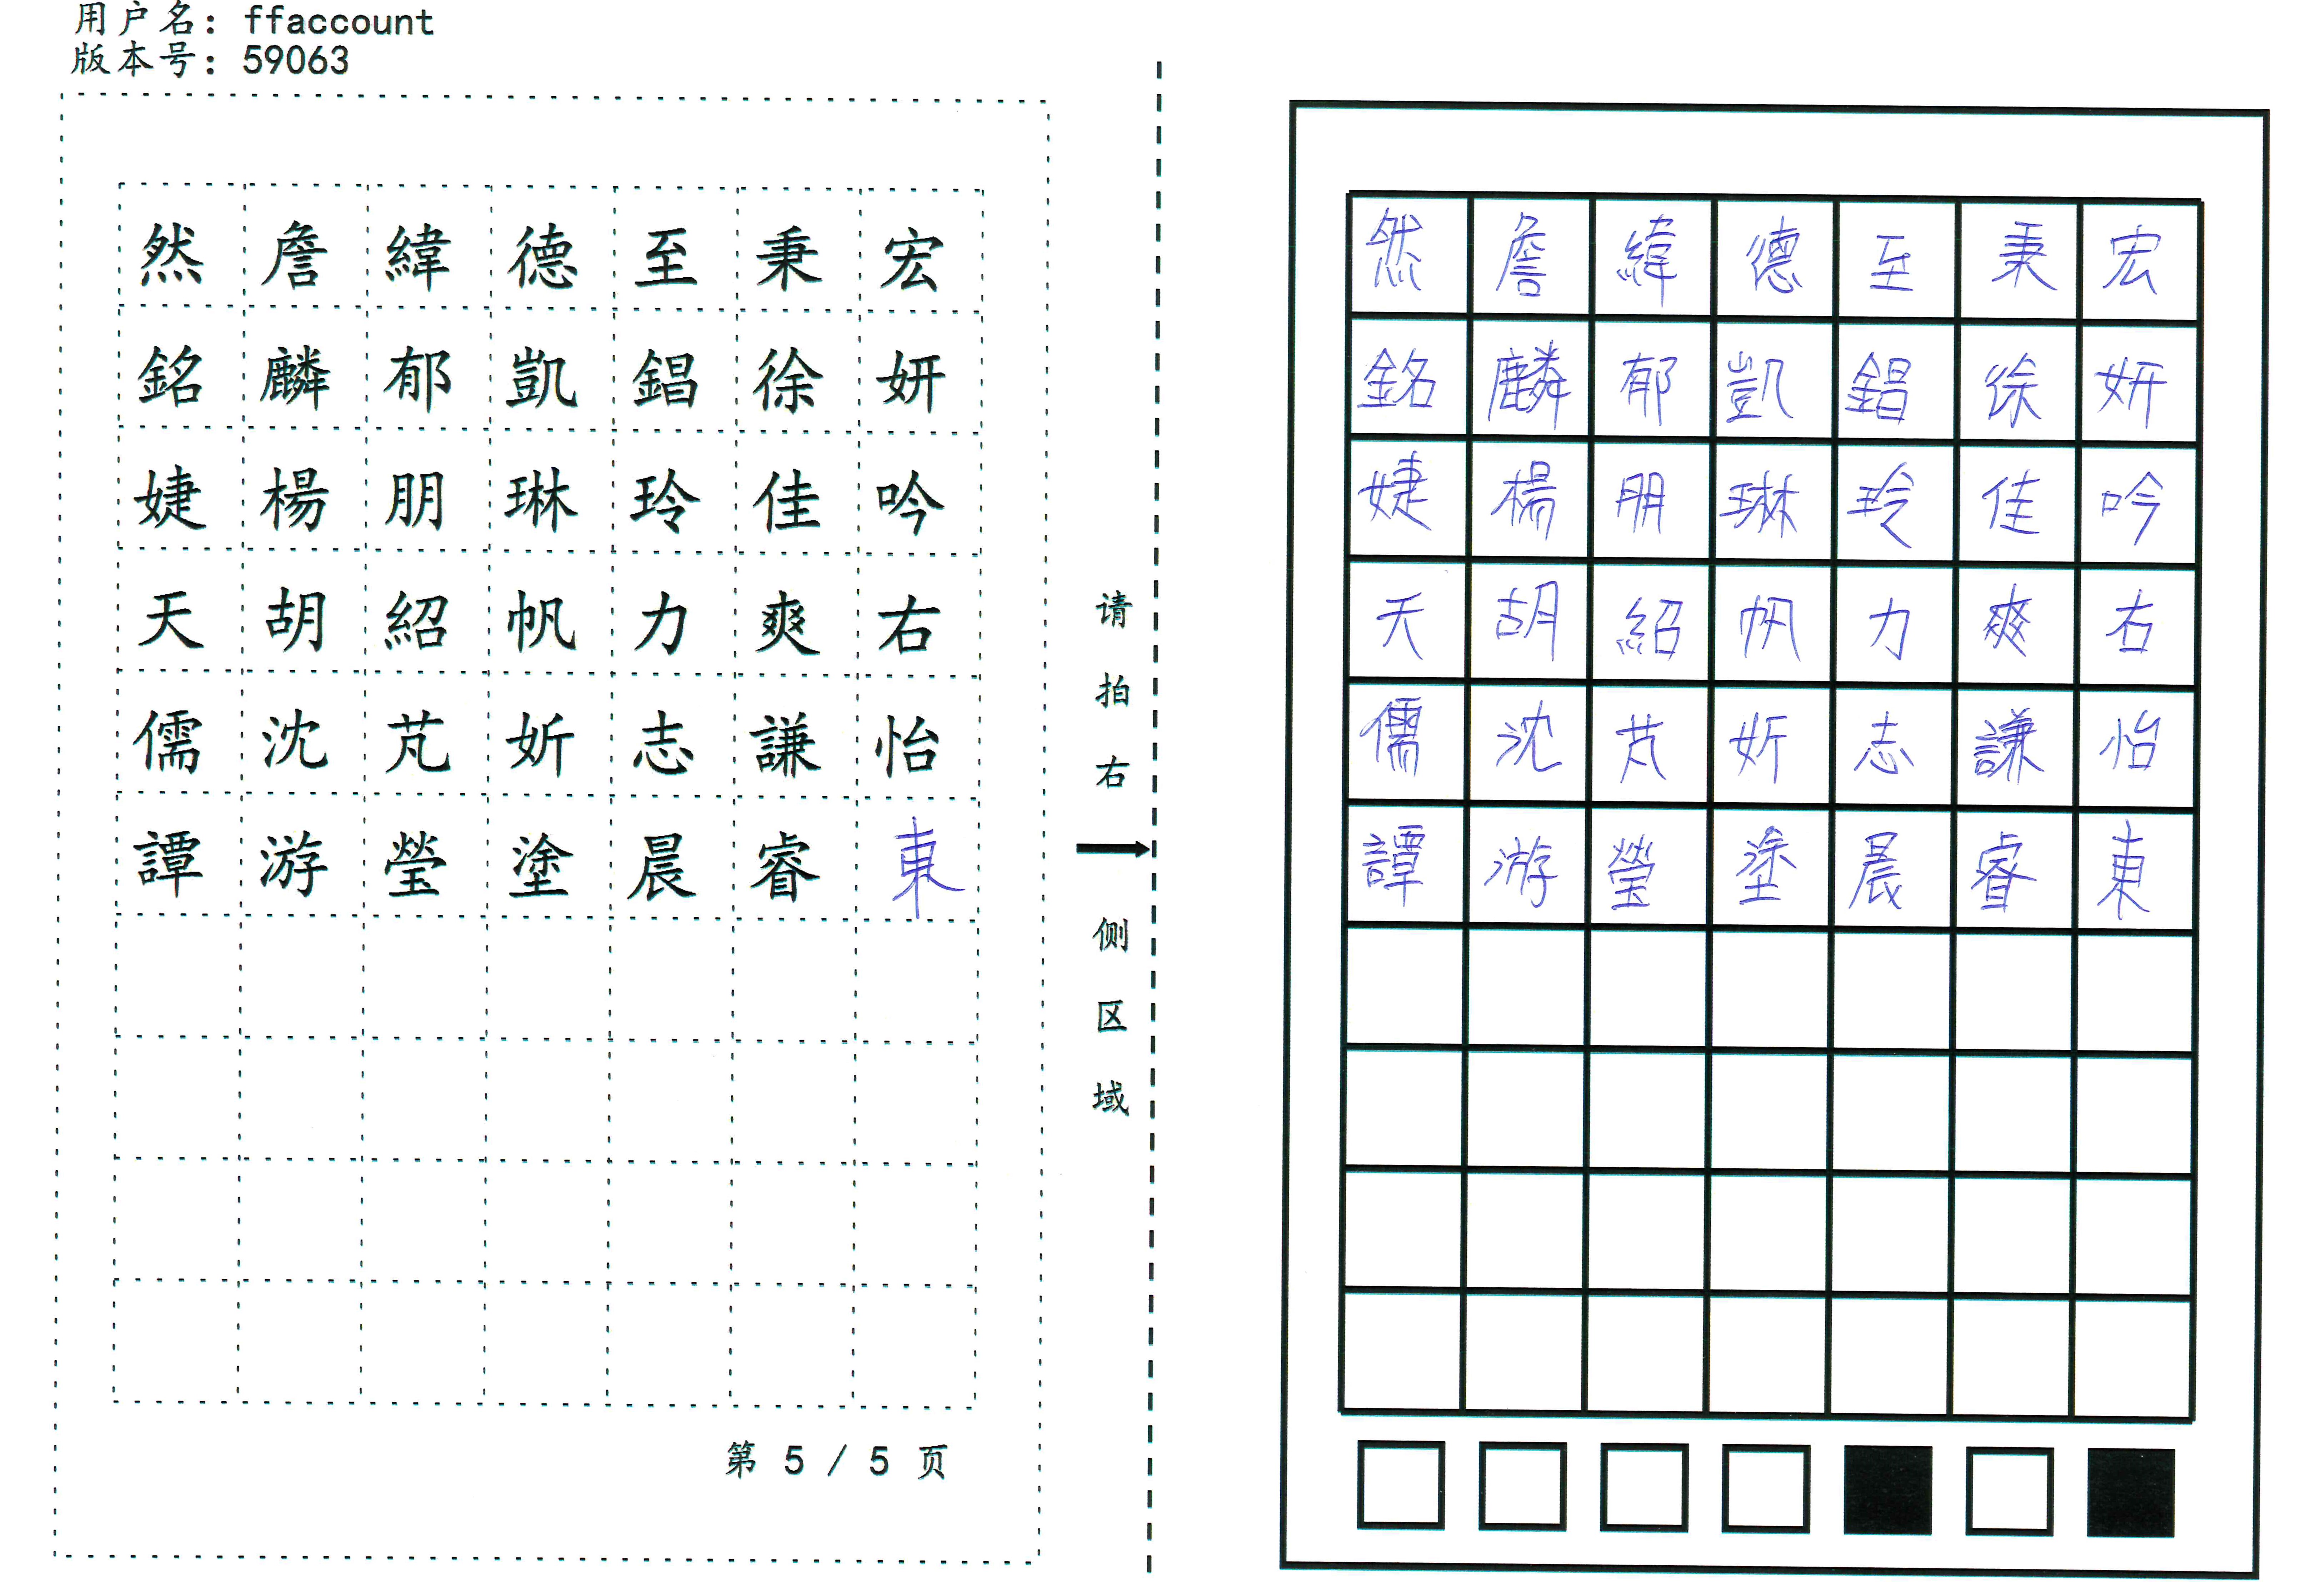 用户名：ffaccount
版本号：59063
然詹緯德至秉宏
銘麟郁凱錩徐妍
婕楊朋琳玲佳吟
天胡紹帆力爽右
儒沈芃妡志謙怡
譚游瑩塗晨睿東
第 5 / 5 页
请拍右侧区域
然詹緯德至秉宏
銘麟郁凱錩徐妍
婕楊朋琳玲佳吟
天胡紹帆力爽右
儒沈芃妡志謙怡
譚游瑩塗晨睿東